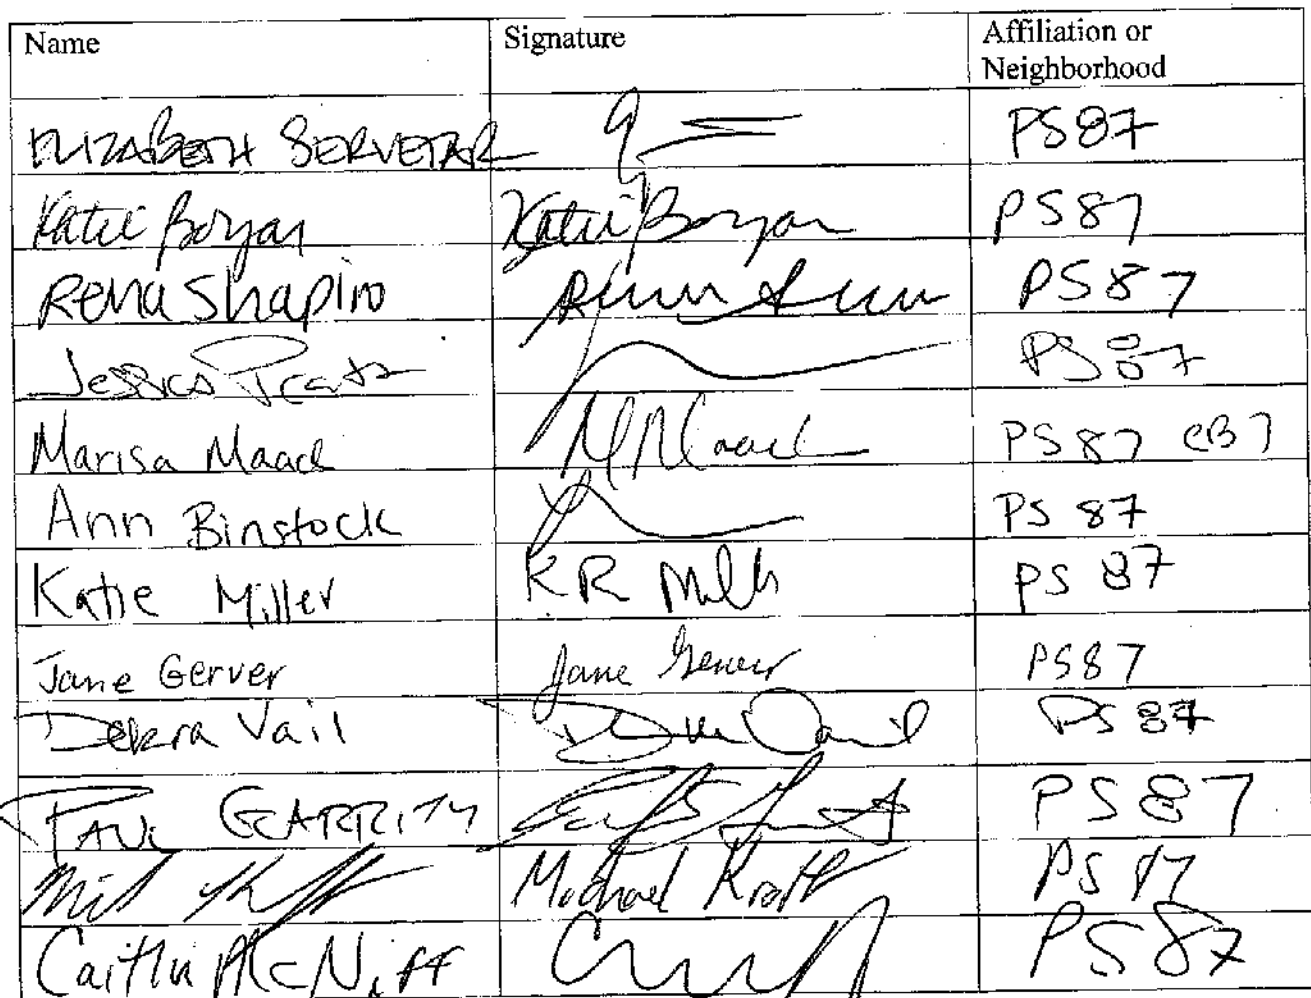 Name Signature Affiliation or
Neighborhood
ELIZABETH SERVETAR PS87
Katie Boryan Katie Boryan PS87
Rena Shapiro PS87
Jessica PS87
Marisa Maack MMaack PS87 CB7
Ann Binstock PS 87
Katie Miller KR PS 87
Jane Gerver Jane Gerver PS87
Debra Vail PS 87
PAUL GARRITY PS87
Michael PS 87
Caitlin McNiff PS87